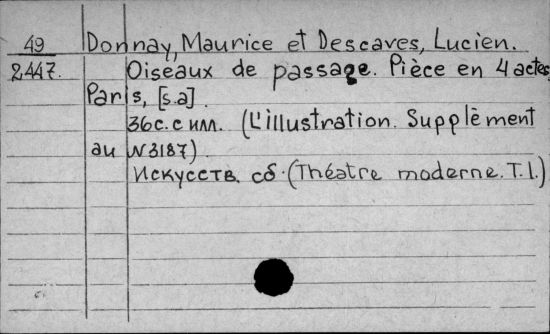 49 Donnay, Maurice et Descaves, Lucien.
2447. Oiseaux de passage. Pièce en 4 actes,
Paris, [s.a].
36с. с илл. (L'illustration. Supplèment
au N3187).
Искусств. сб. (Théatre moderne. T. 1.)